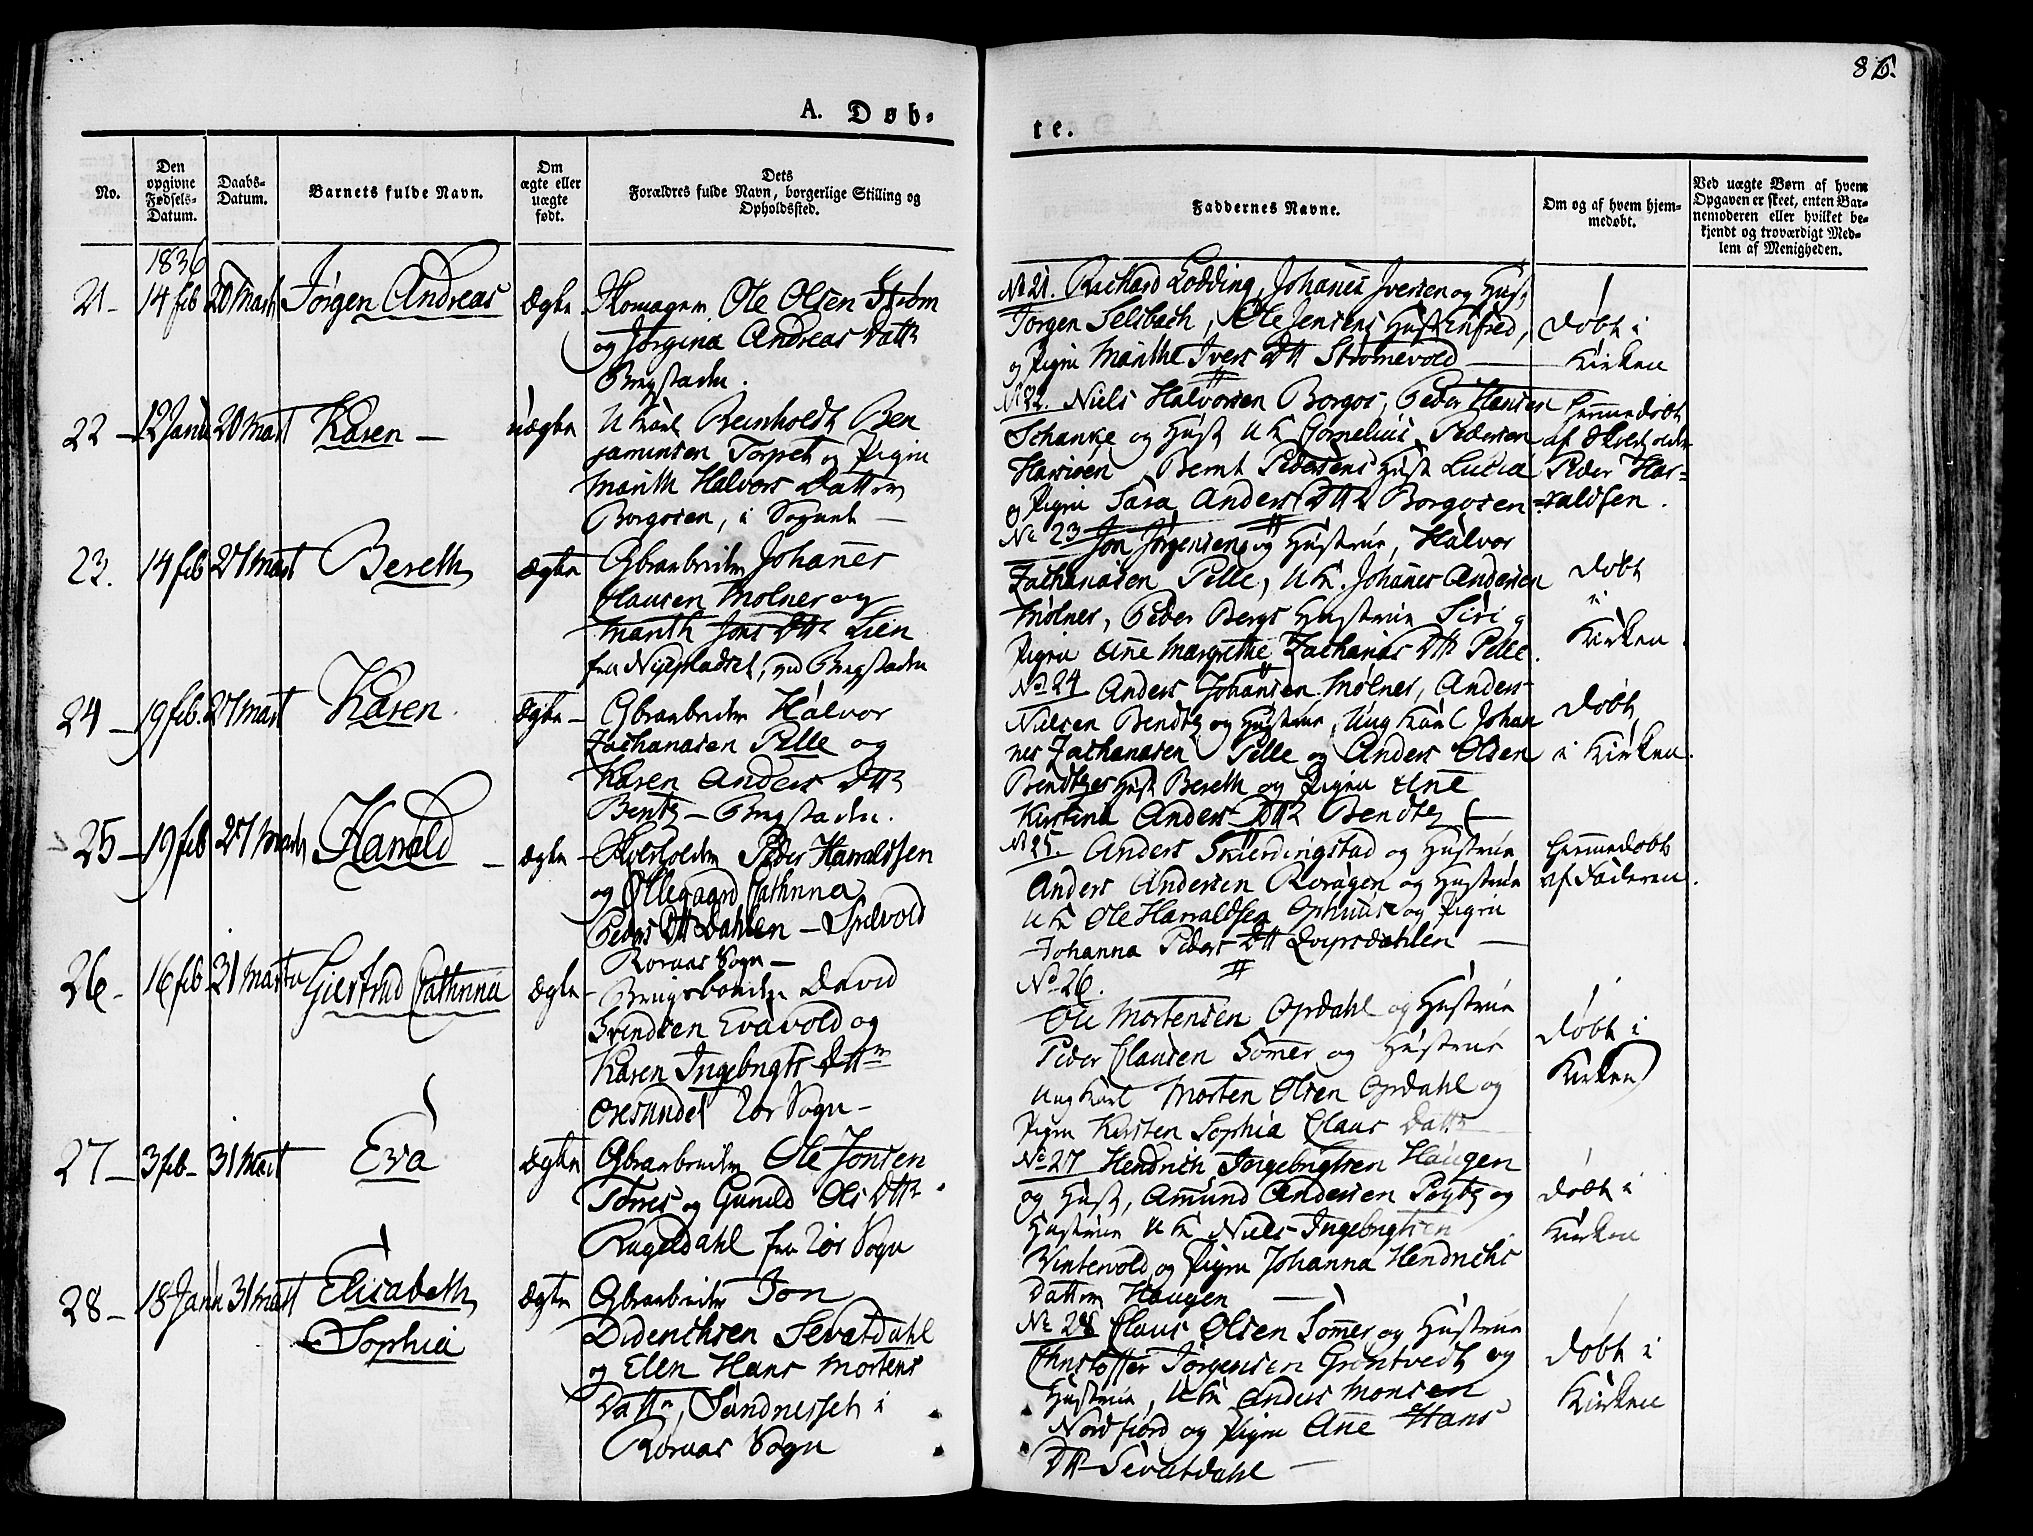 86.
A. Døb-
te.
No.
Den opgivne Fødsels-Datum.
Daabs-Datum.
Barnets fulde Navn.
Om ægte eller uægte født.
Dets Forældres fulde Navn, borgerlige Stilling og Opholdssted.
Faddernes Navne.
Om og af hvem hjem-medøbt.
Ved uægte Børn af hvem Opgaven er skeet, enten Bar-nemoderen eller hvilket be-kjendt og troværdigt Med-lem af Menigheden.
1836
21- 14 feb 20 Marts Jørgen Andreas Ægte
Skomager Ole Olsen Strøm
og Jørgina Andreas Datt
Bergstaden.
No 21. Richard Lodding, Johanes Iversen og Hust,
Jørgen Selsbach, Ole Jensens Hust
og Pigen Marithe Ivers Dtt Strømevold
døbt i
Kirken
22 - 12 Janu 20 Mart Karen - uægte
U Karl Reinholdt Ben
jaminsen Torpet og Pigen
Marith Halvors Datter
Borgosen, i Sognet -
No 22. Niels Halvorsen Borgos, Peder Hansen
Schanke og Hust UK Cornelius Pedersen
Hansen, Bernt Pedersens Hust Lucia
og Pigen Sara Anders Dtt Borgosen
hjemmedøbt
af Skoleholder
Peder Har-
raldsen.
23. 14 feb 27 Mart Bereth ægte
Grbarbeider Johanes
Clausen Molnes og
Marith Jons Dtt Lien
fra Nyepladset, ved Bergstaden
No 23 Jon Jørgensen og Hustrue, Halvor
Zachariasen Pelle, UK. Johanes Andersen
Molnes, Peder Bergs Hustrue Siri og
Pigen Ane Margrethe Zacharias Dtt Pelle.
døbt
i
Kirken.
24 - 19 feb. 27 Mart Karen. Ægte -
Grbarbeider Halvor
Zachariasen Pelle og
Karen Anders Dtt
Bentz - Bergstaden.
No 24 Anders Johansen Molnes, Anders
Nielsen Bendtz og Hustrue, Ung Karl Johan
nes Zachariasen Pelle og Anders Olsen
Bendtzes Hust Bereth og Pigen Ane
Kirstina Anders Dtt Bendtz
døbt
i Kirken.
25 - 19 feb 27 Marts Harrald - ægte
Skoleholder Peder Harraldsen
og Øllegaard Cathrina
Peders Dtt Dahlen -
Roraas Sogn -
No 25. Anders Skierdingstad og Hustrue
Anders Andersen Rorågen og Hustrue
UK Ole Harraldsen og Pigen
Johanna Peders Dtt
hjemmedøbt
af Faderen.
26 - 16 feb 31 Marts Giertrud Cathrina ægte
Brugsbonde David
Svendsen Evavold og
Karen Ingebrigts Dtt
Oresundet Sogn -
No 26.
Ole Mortensen Opdahl og Hustrue
Peder Clausen Somer og Hustrue
Ung Karl Morten Olsen Opdahl og
Pigen Kirsten Sophia Claus Datt
døbt i
Kirken
27 - 3 feb - 31 Mart Eva ægte
Grbarbeider Ole Jonsen
Torres og Gunild Ols Dtt
Rugeldahl fra Sogn
No 27 Hendrich Ingebrigtsen Haugen
og Hust, Amund Andersen og
Hustrue UK Niels Ingebrigtsen
Vintervold og Pigen Johanna Hendrichs
Datter Haugen -
døbt i
Kirken
28 - 18 Janu 31 Mart Elisabeth
Sophia
ægte
Grbarbeider Jon
Diderichsen Sevatdahl
og Elen Hans Mortens
Datter, Sandnesset i
Roraas Sogn
No 28 Claus Olsen Somer og Hustrue
Christoffer Jørgensen Grøntvedt og
Hustrue, UK Anders Monsen
Nordfiord og Pigen Ane Hans
Dtt Sevatdahl -
døbt i
Kirken